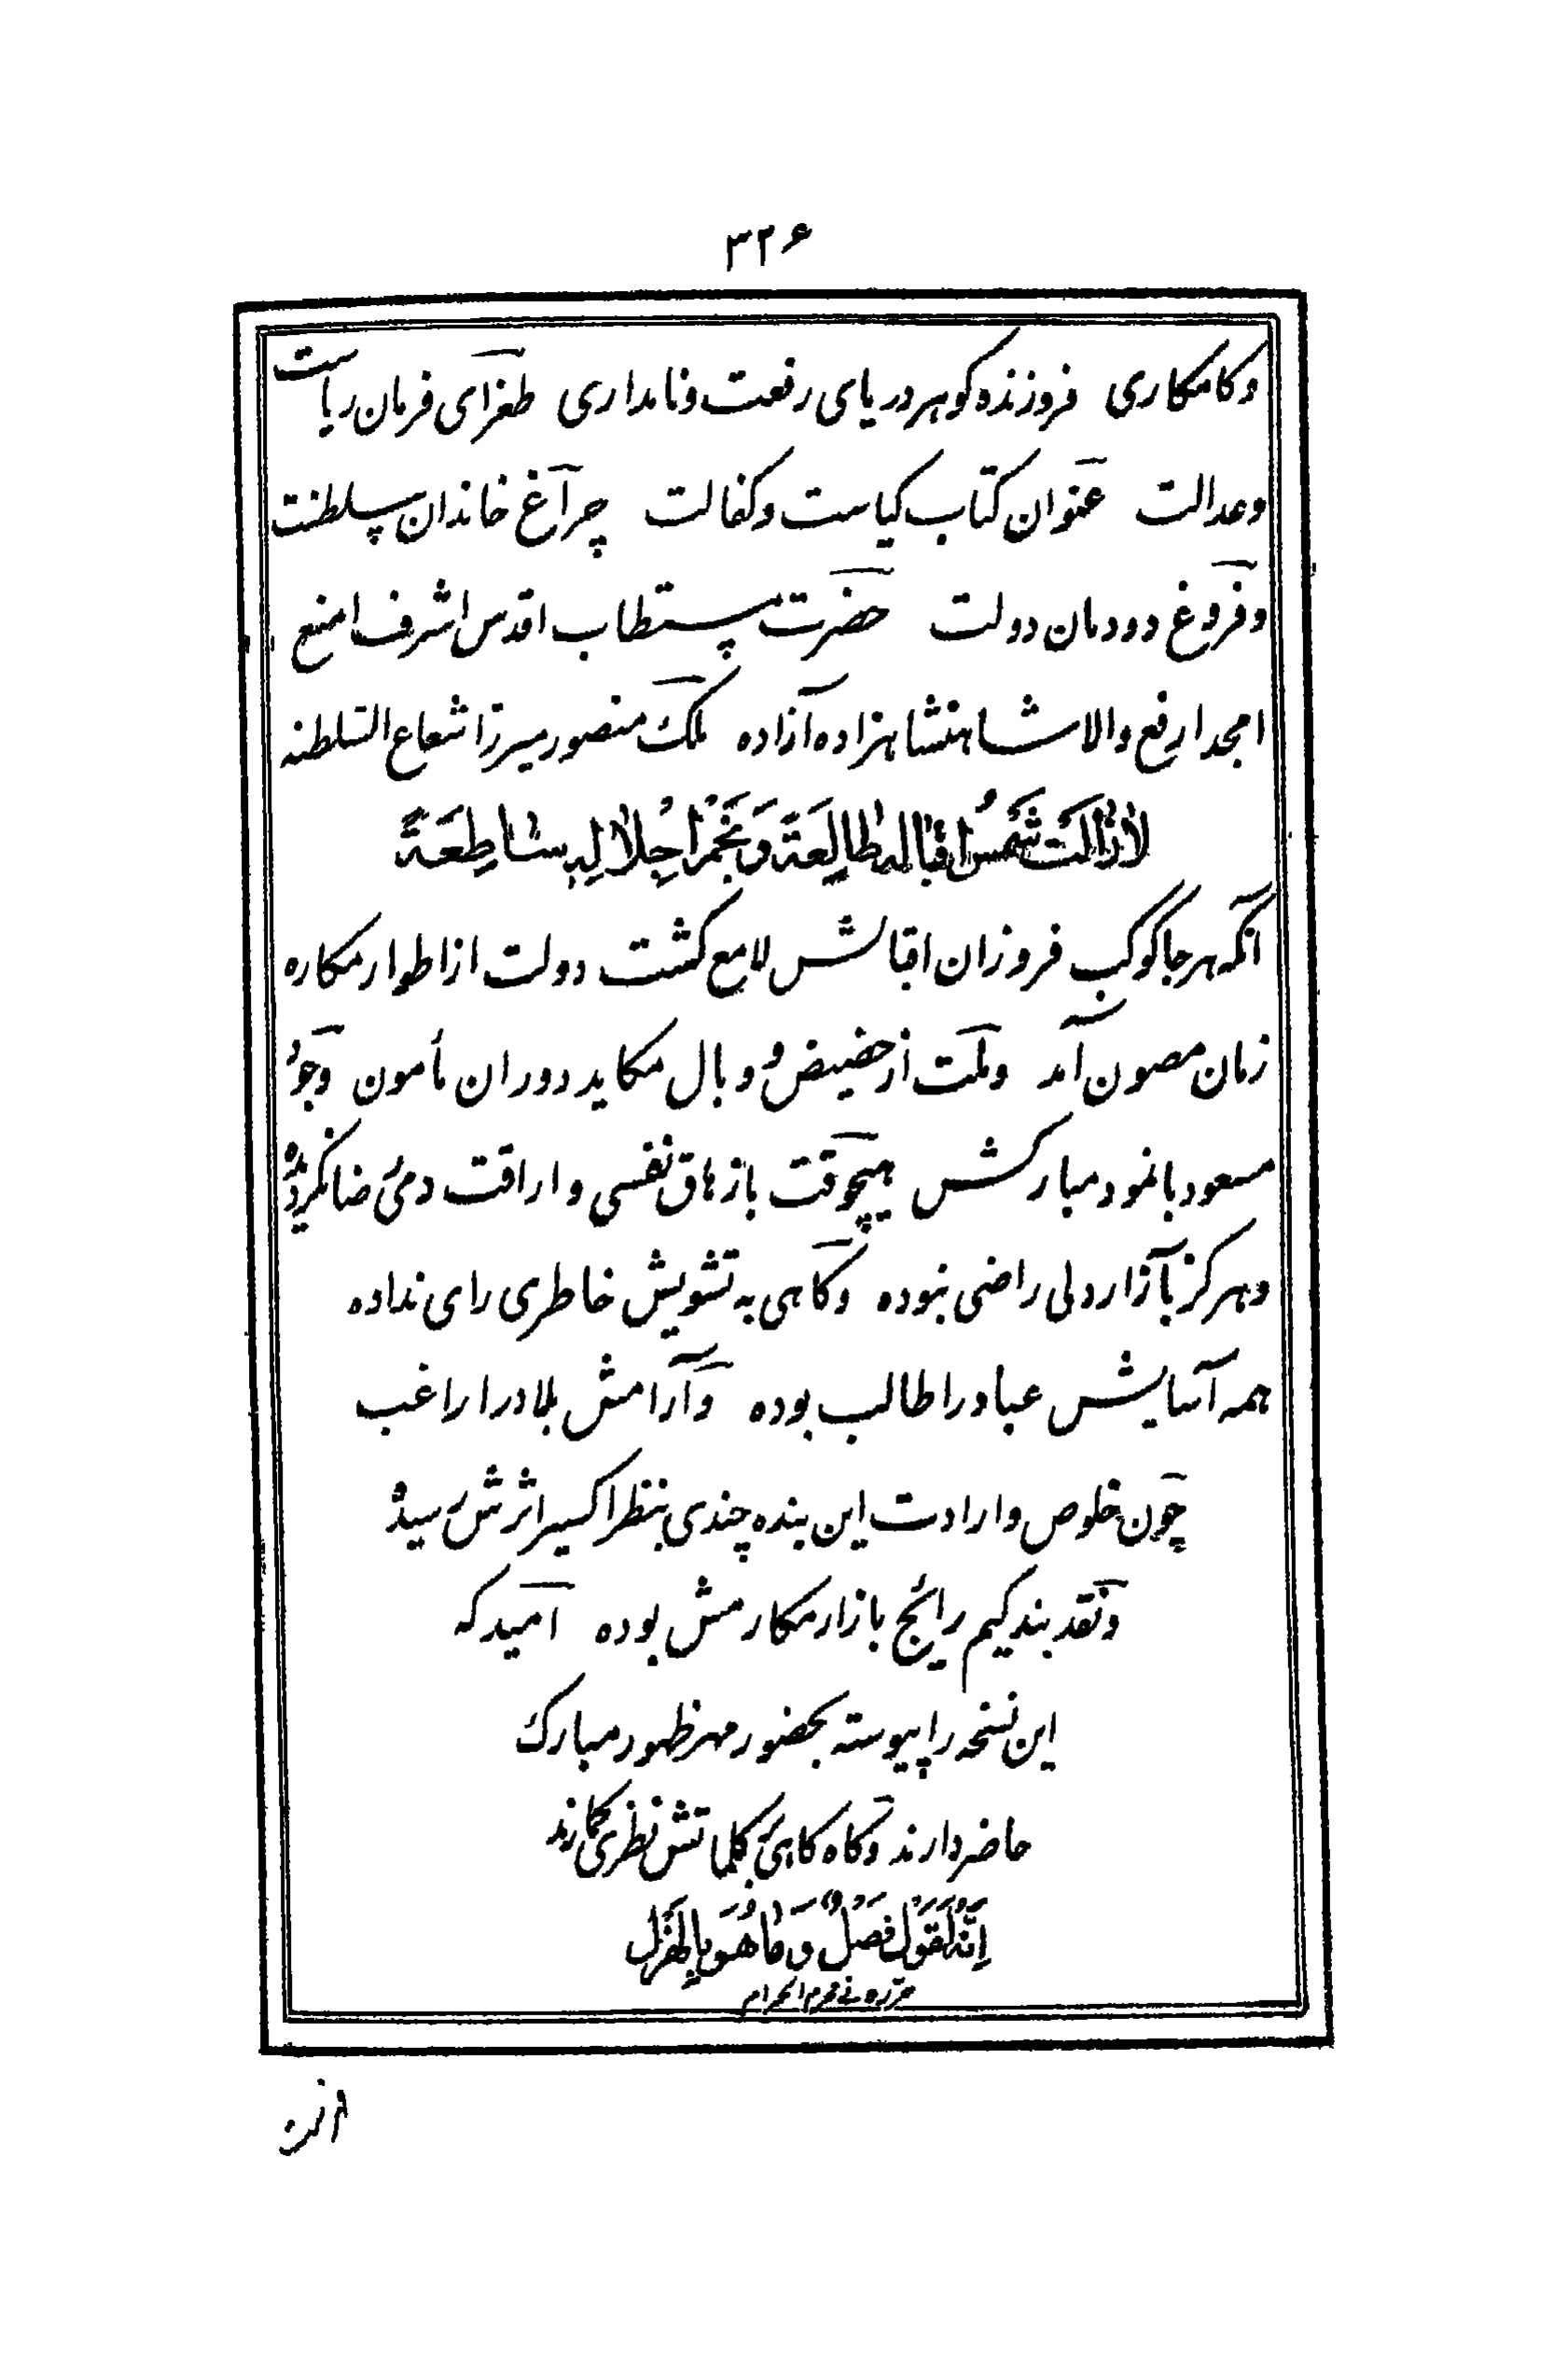 ۳۲۶
و کامکاری فروزنده گوهر دریای رفعت و نامداری طغرای فرمان ریاست
و عدالت عنوان کتاب کیاست و کفالت چراغ خاندان سلطنت
و فروغ دودمان دولت حضرت مستطاب اقدس اشرف امنع
امجد ارفع والا شاهنشاهزاده آزاده ملک منصور میرزا شعاع السلطنه
لازالَت شَمسُ اِقبالِهِ طالِعَةً وَ نَجمُ اِجلالِهِ ساطِعَةً
آنکه هر جا کوکب فروزان اقبالش لامع گشت دولت از اطوار مکاره
زمان مصون آمد و ملت از حضیض و وبال مکاید دوران مأمون وجود
مسعود با نمود مبارکش هیچوقت بازهاق نفسی و اراقت دمی رضا نکردیده
و هرگز بآزار دلی راضی نبوده و کاهی به تشویش خاطری رای نداده
همه آسایش عباد را طالب بوده و آرامش بلاد را راغب
چون خلوص و ارادت این بنده چندی بنظر اکسیر اثرش رسیده
و نقد بندکیم رایج بازار مکارمش بوده امید که
این نسخه را پیوسته بحضور مهر ظهور مبارک
حاضر دارند و کاه کاهی بکلماتش نظری کمارند
اِنَّهُ لَقَوْلٌ فَصْلٌ وَ ما هُوَ بِالْهَزْلِ
حرره فی محرم الحرام